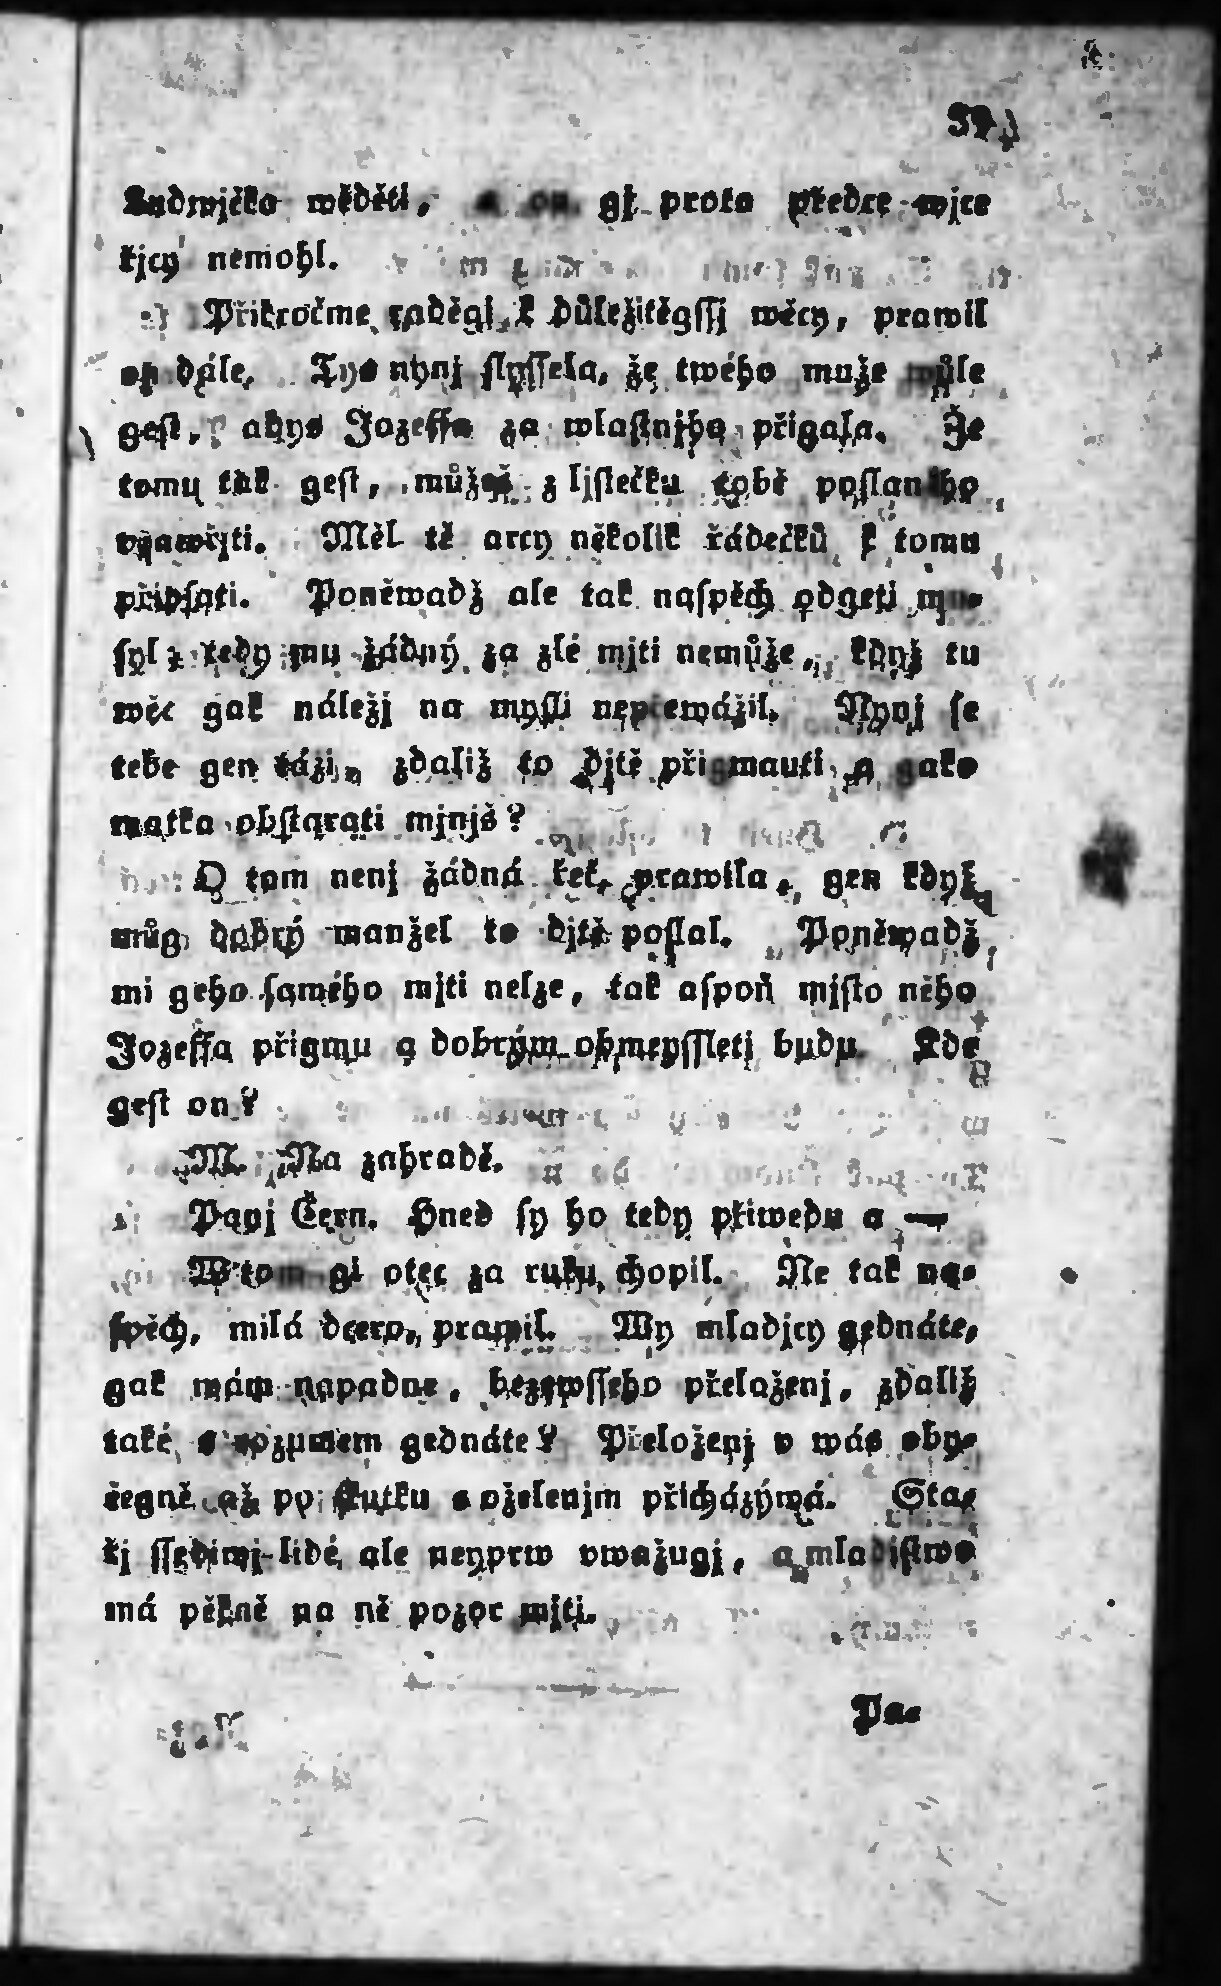 39
Ludwjčko wěděti, a on gj proto předce wjce
řjcy nemohl.
Přikročme raděgi k důležitěgſſj wěcy, prawil
on dále. Tys nynj ſlyſſela, že twého muže wůle
geſt, abys Jozeffa za wlaſtnjho přigala. Že
tomu tak geſt, můžeš z ljſtečku tobě poſlaného
Měl tě arcy několik řádečků k tomu
připſati. Poněwadž ale tak naſpěch odgeti mu-
ſyl, tedy mu žádný za zlé mjti nemůže, když tu
wěc gak náležj na myſli neprewážil. Nynj ſe
tebe gen táži, zdaliž to djtě přigmauti, a gako
matka obſtarati mjnjš?
O tom nenj žádná řeč, prawila, gen když
můg dobrý manžel to djtě poſlal. Poněwadž
mi geho ſamého mjti nelze, tak aſpoň mjſto něho
Jozeffa přigmu a dobrým obmeyſſleti budu. Kde
geſt on?
M. Na zahradě.
Panj Čern. Hned ſy ho tedy přiwedu a —
W tom gi otec za ruku chopil. Ne tak na-
ſpěch, milá dcero, prawil. Wy mladjcy gednáte,
gak wám napadne, bezewſſeho přeloženj, zdaliž
také s rozumem gednáte? Přeloženj v wás oby-
čegně až po ſkutku s oželenjm přicházýwá. Sta-
řj ſſediwj lidé ale neyprw vwažugj, a mladiſtwo
má pěkně na ně pozor mjti.
Pa-